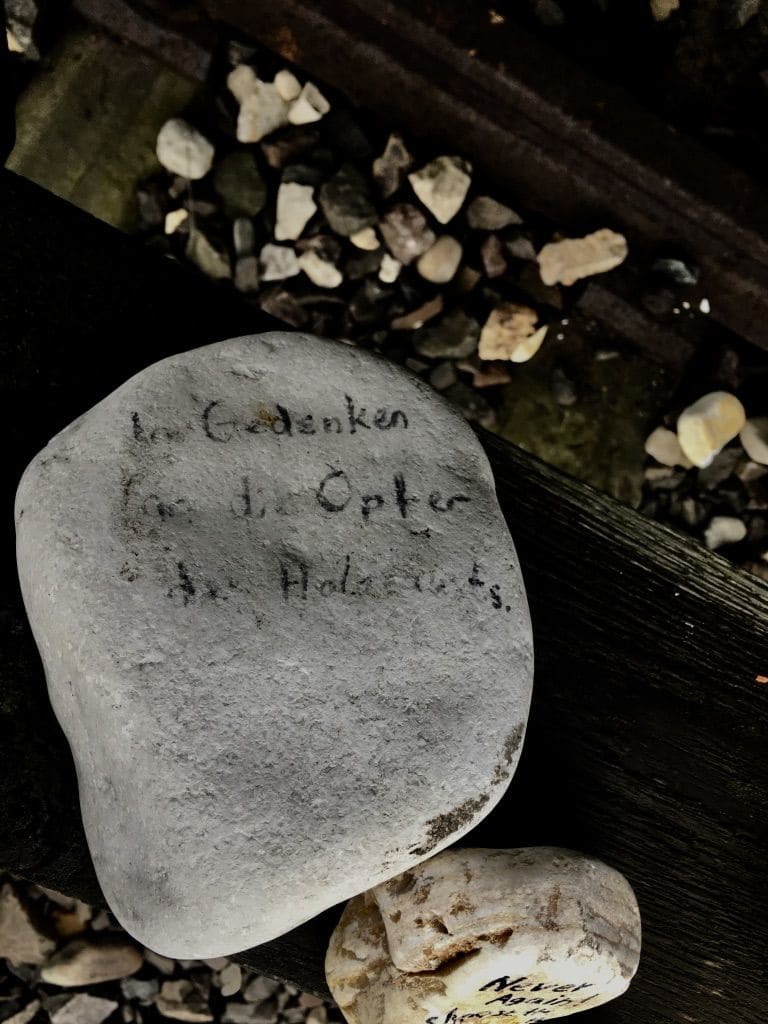 In Gedenken
an die Opfer
des Holocausts.
Never
Again!
choose to